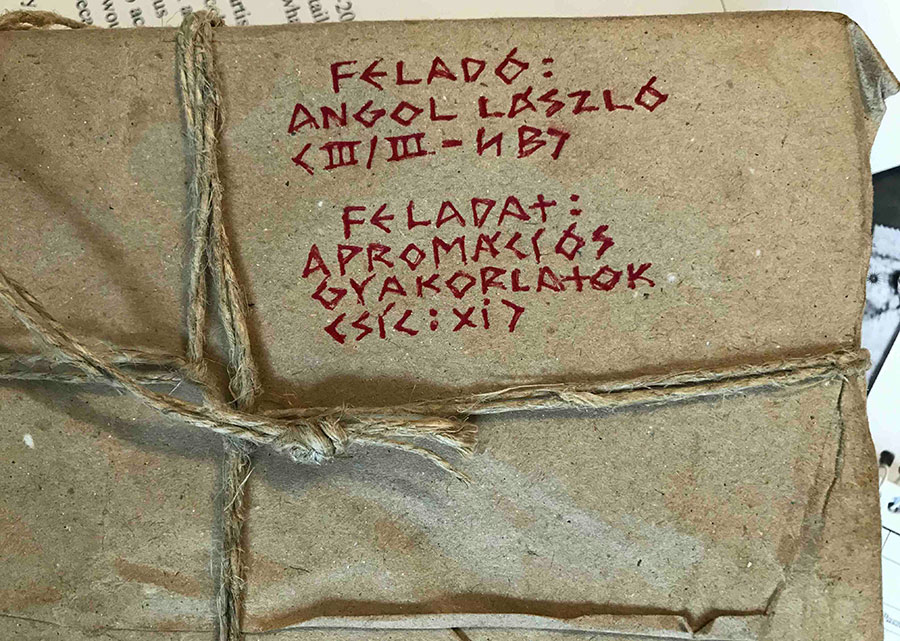 FELADÓ:
ANGOL LÁSZLÓ
<III/III-NB>
FELADAT:
APROMÁCIÓS
GYAKORLATOK
<SÍC:XI>